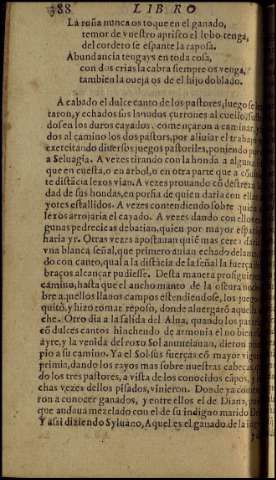 388 LIBRO
La roña nunca os toque en el ganado,
temor de vuestro aprisco el lobo tenga,
del cordero se espante la raposa.
Abundancia tengays en toda cosa,
con dos crias la cabra siempre os venga,
tambien la oueja os de el hijo doblado.
A cabado el dulce canto de los pastores, luego se
taron, y echados sus lanudos çurrones al cuello,
dose en los duros cayados, começaron a caminar,
dos al camino los dos pastors, por aliuiar el trabajo
exercitando diuersos juegos pastoriles, poniendo
a Seluagia. A vezes tirando con la honda a alguna
que en cuesta, o en arbol, o en otra parte que a
te distãcia lexos vian. A vezes prouando cõ destreza
dad de sus hondas, en porfia de quien daria con ellas
yores estallidos. A vezes contendiendo sobre quien
lexos arrojaria el cayado. A vezes dando con ellos
gunas pedrecicas debatian, quien por mayor espacio
haria yr. Otras vezes apostauan quiẽ mas cerca daria
vna blanca señal, que primero auian echado delante,
do con canto, qual a la distãcia de la señal la fuerça
braços alcançar pudiesse. Desta manera prosiguieron
camino, hasta que el ancho manto de la escura noche
bre aquellos llanos campos estendiendose, los juegos
quitó, y hizo tomar reposo, donde aluergarõ aquella
che. Otro dia a la salida del Alua, quando los paxaros
cõ dulces cantos hinchendo de armonia el no bien
ayre, y la venida del roxo Sol anunciauan, dieron
pio a su camino. Ya el Sol sus fuerças cõ mayor vigor
primia, dando los rayos mas sobre nuestras cabeças,
do los tres pastores, a vista de los conocidos cãpos, y
chas vezes dellos pisados, vinieron. Donde ya
ron a conocer ganados, y entre ellos el de Diana,
que andaua mezclado con el de su indigno marido
Y assi diziendo Syluano, Aquel es el ganado de la